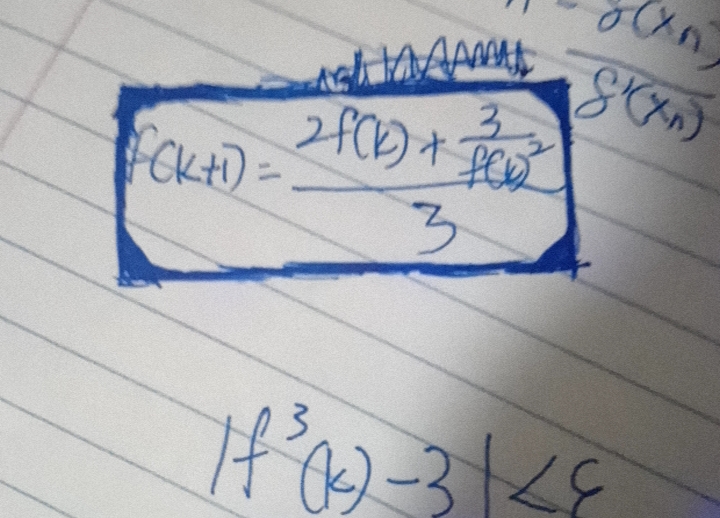 g(xn)
g'(xn)
f(k+1) = (2f(k) + 3/f(k)^2)/3
|f^3(k) - 3| < ε